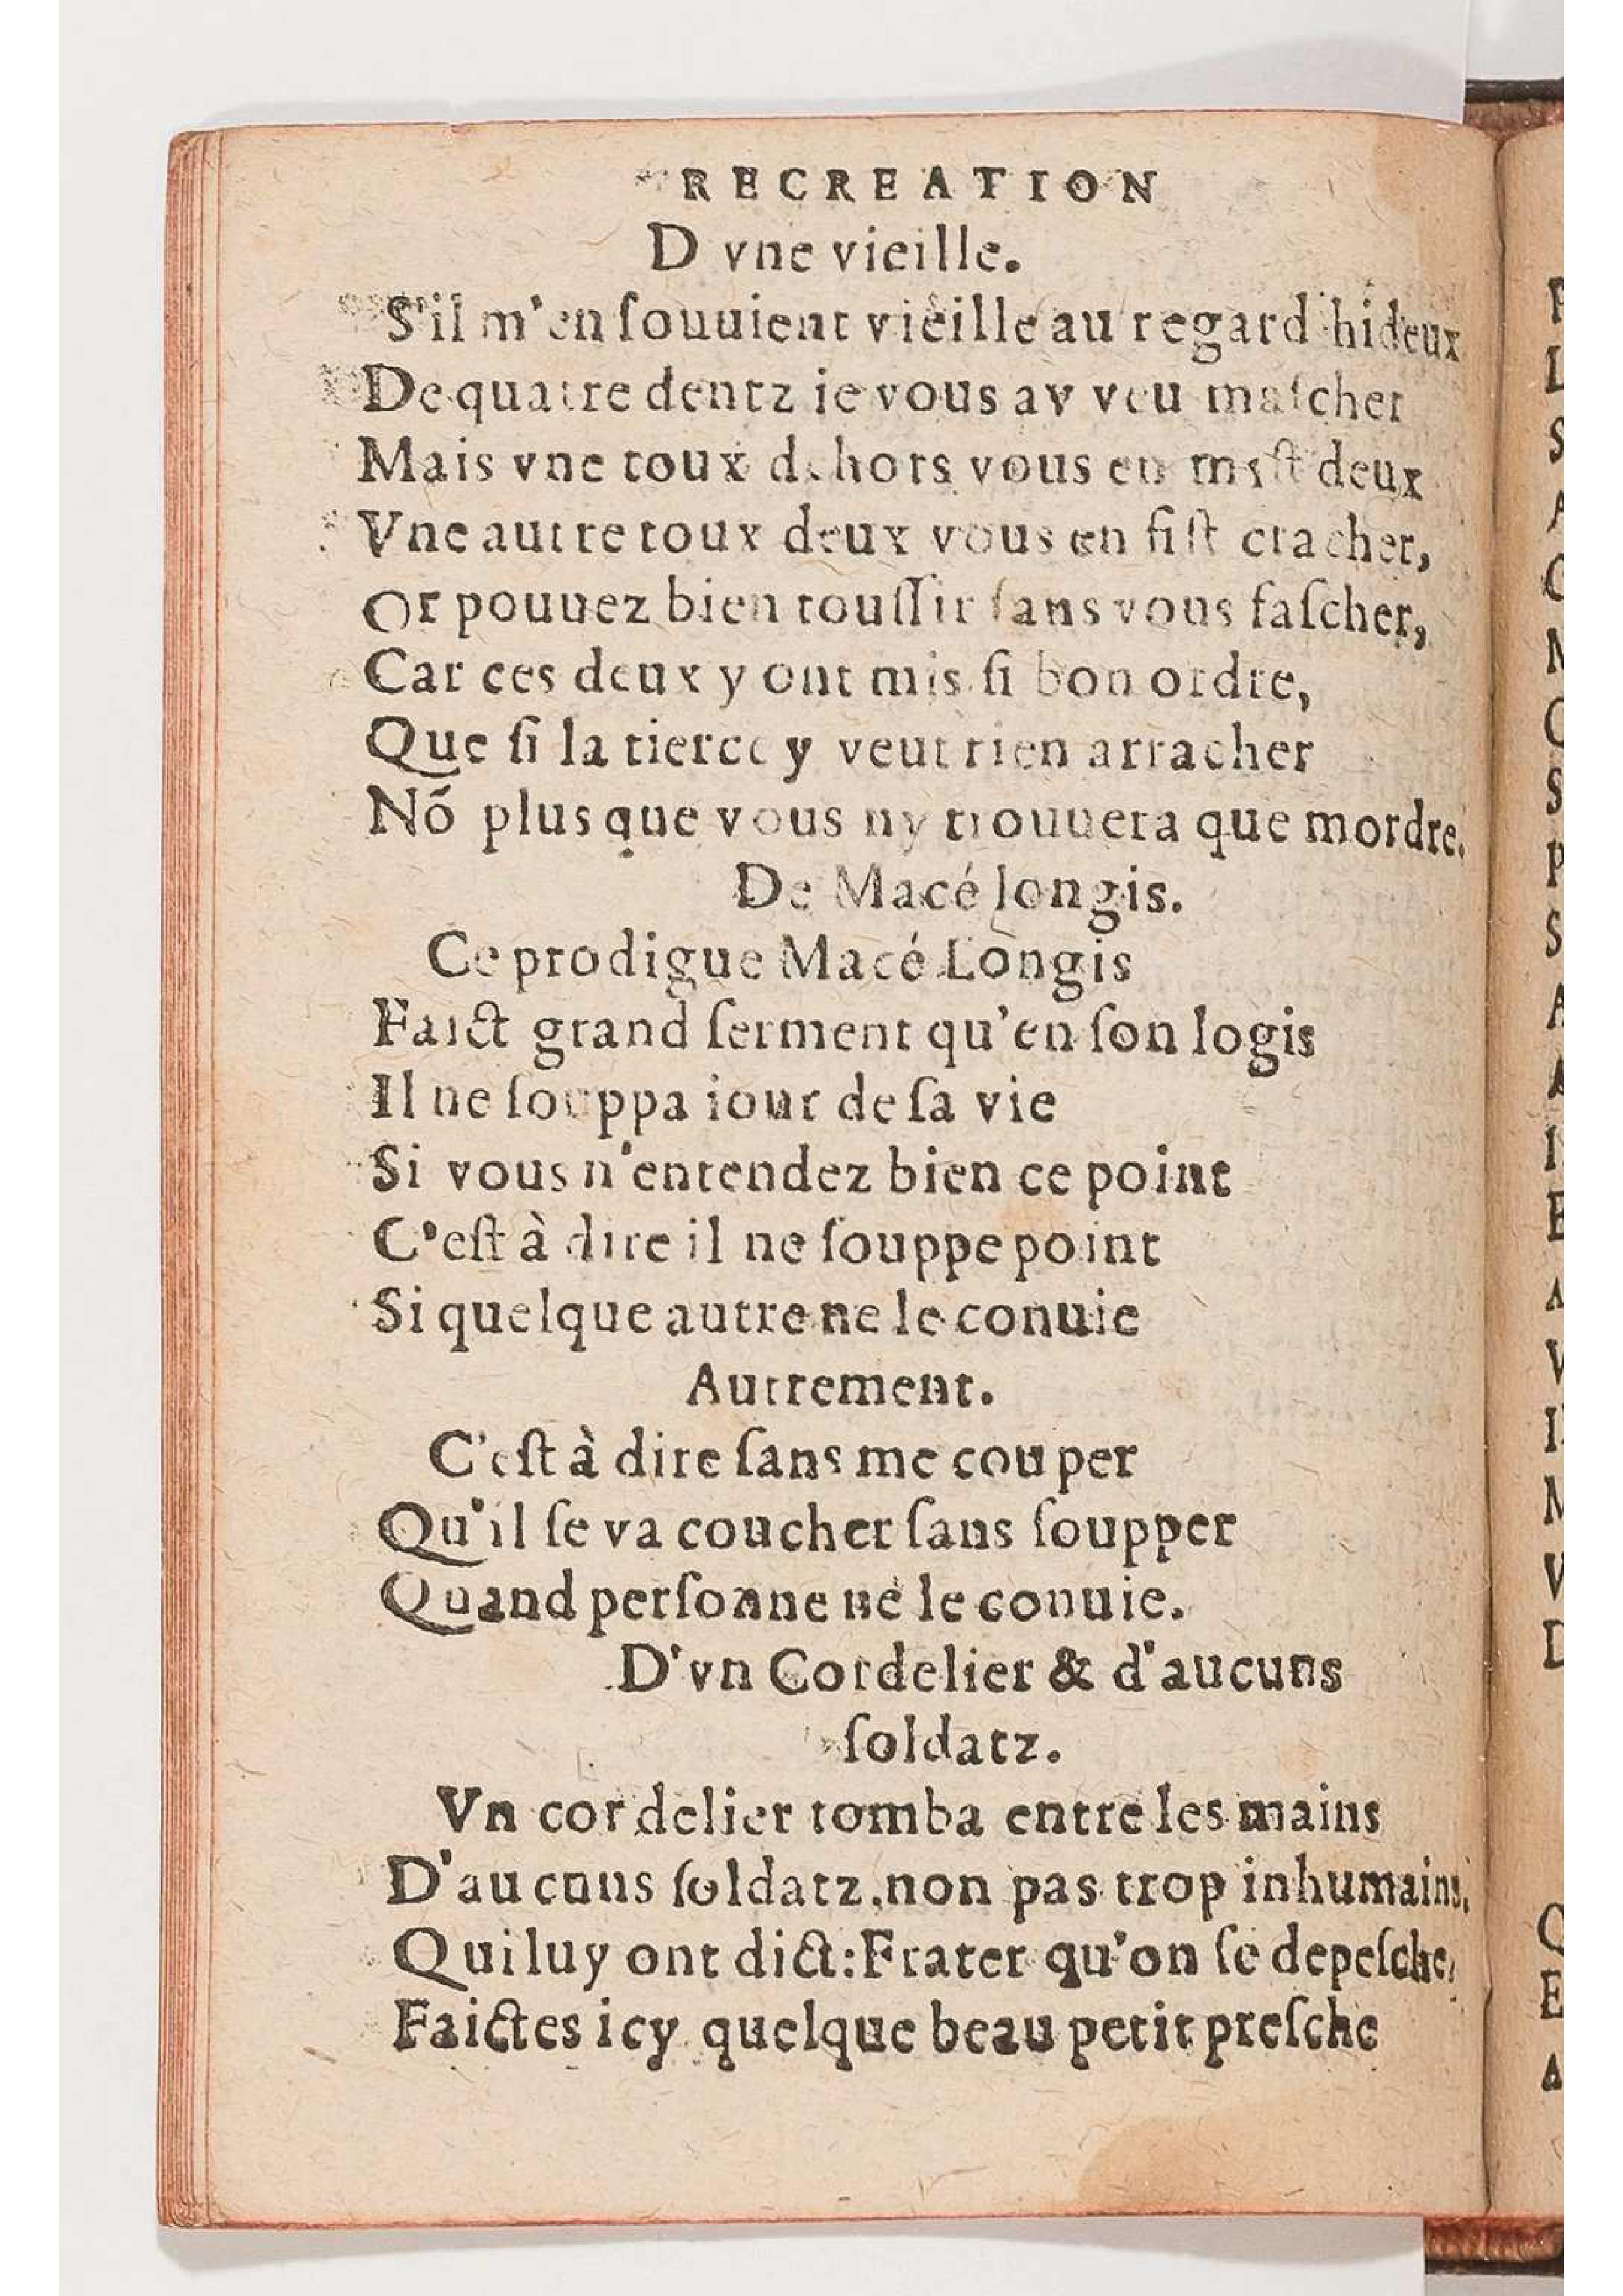 RECREATION
D vne vieille.
S'il m'en ſouuient vieille au regard hideux
De quatre dentz ie vous ay veu maſcher
Mais vne toux dehors vous en miſt deux
Vne autre toux deux vous en fiſt cracher,
Or pouuez bien touſſir ſans vous faſcher,
Car ces deux y ont mis ſi bon ordre,
Que ſi la tierce y veut rien arracher
Nõ plus que vous ny trouuera que mordre.
De Macé longis.
Ce prodigue Macé Longis
Faict grand ſerment qu'en ſon logis
Il ne ſouppa iour de ſa vie
Si vous n'entendez bien ce point
C'eſt à dire il ne ſouppe point
Si quelque autre ne le conuie
Autrement.
C'eſt à dire ſans me couper
Qu'il ſe va coucher ſans ſoupper
Quand perſonne ne le conuie.
D'vn Cordelier & d'aucuns
ſoldatz.
Vn cordelier tomba entre les mains
D'aucuns ſoldatz, non pas trop inhumains,
Qui luy ont dict: Frater qu'on ſe depeſche,
Faictes icy quelque beau petit preſche